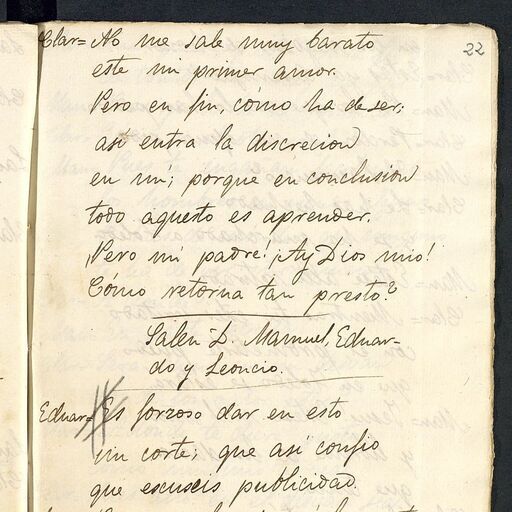 22
Clar= No me sale muy barato
este mi primer amor.
Pero en fin, cómo ha de ser;
asi entra la discrecion
en mi; porque en conclusion
todo aquesto es aprender.
¡Pero mi padre! ¡Ay Dios mio!
Cómo retorna tan presto?
Salen D. Manuel, Eduar-
do y Leoncio.
Eduar= Es forzoso dar en esto
un corte; que asi confio
que escuseis publicidad.